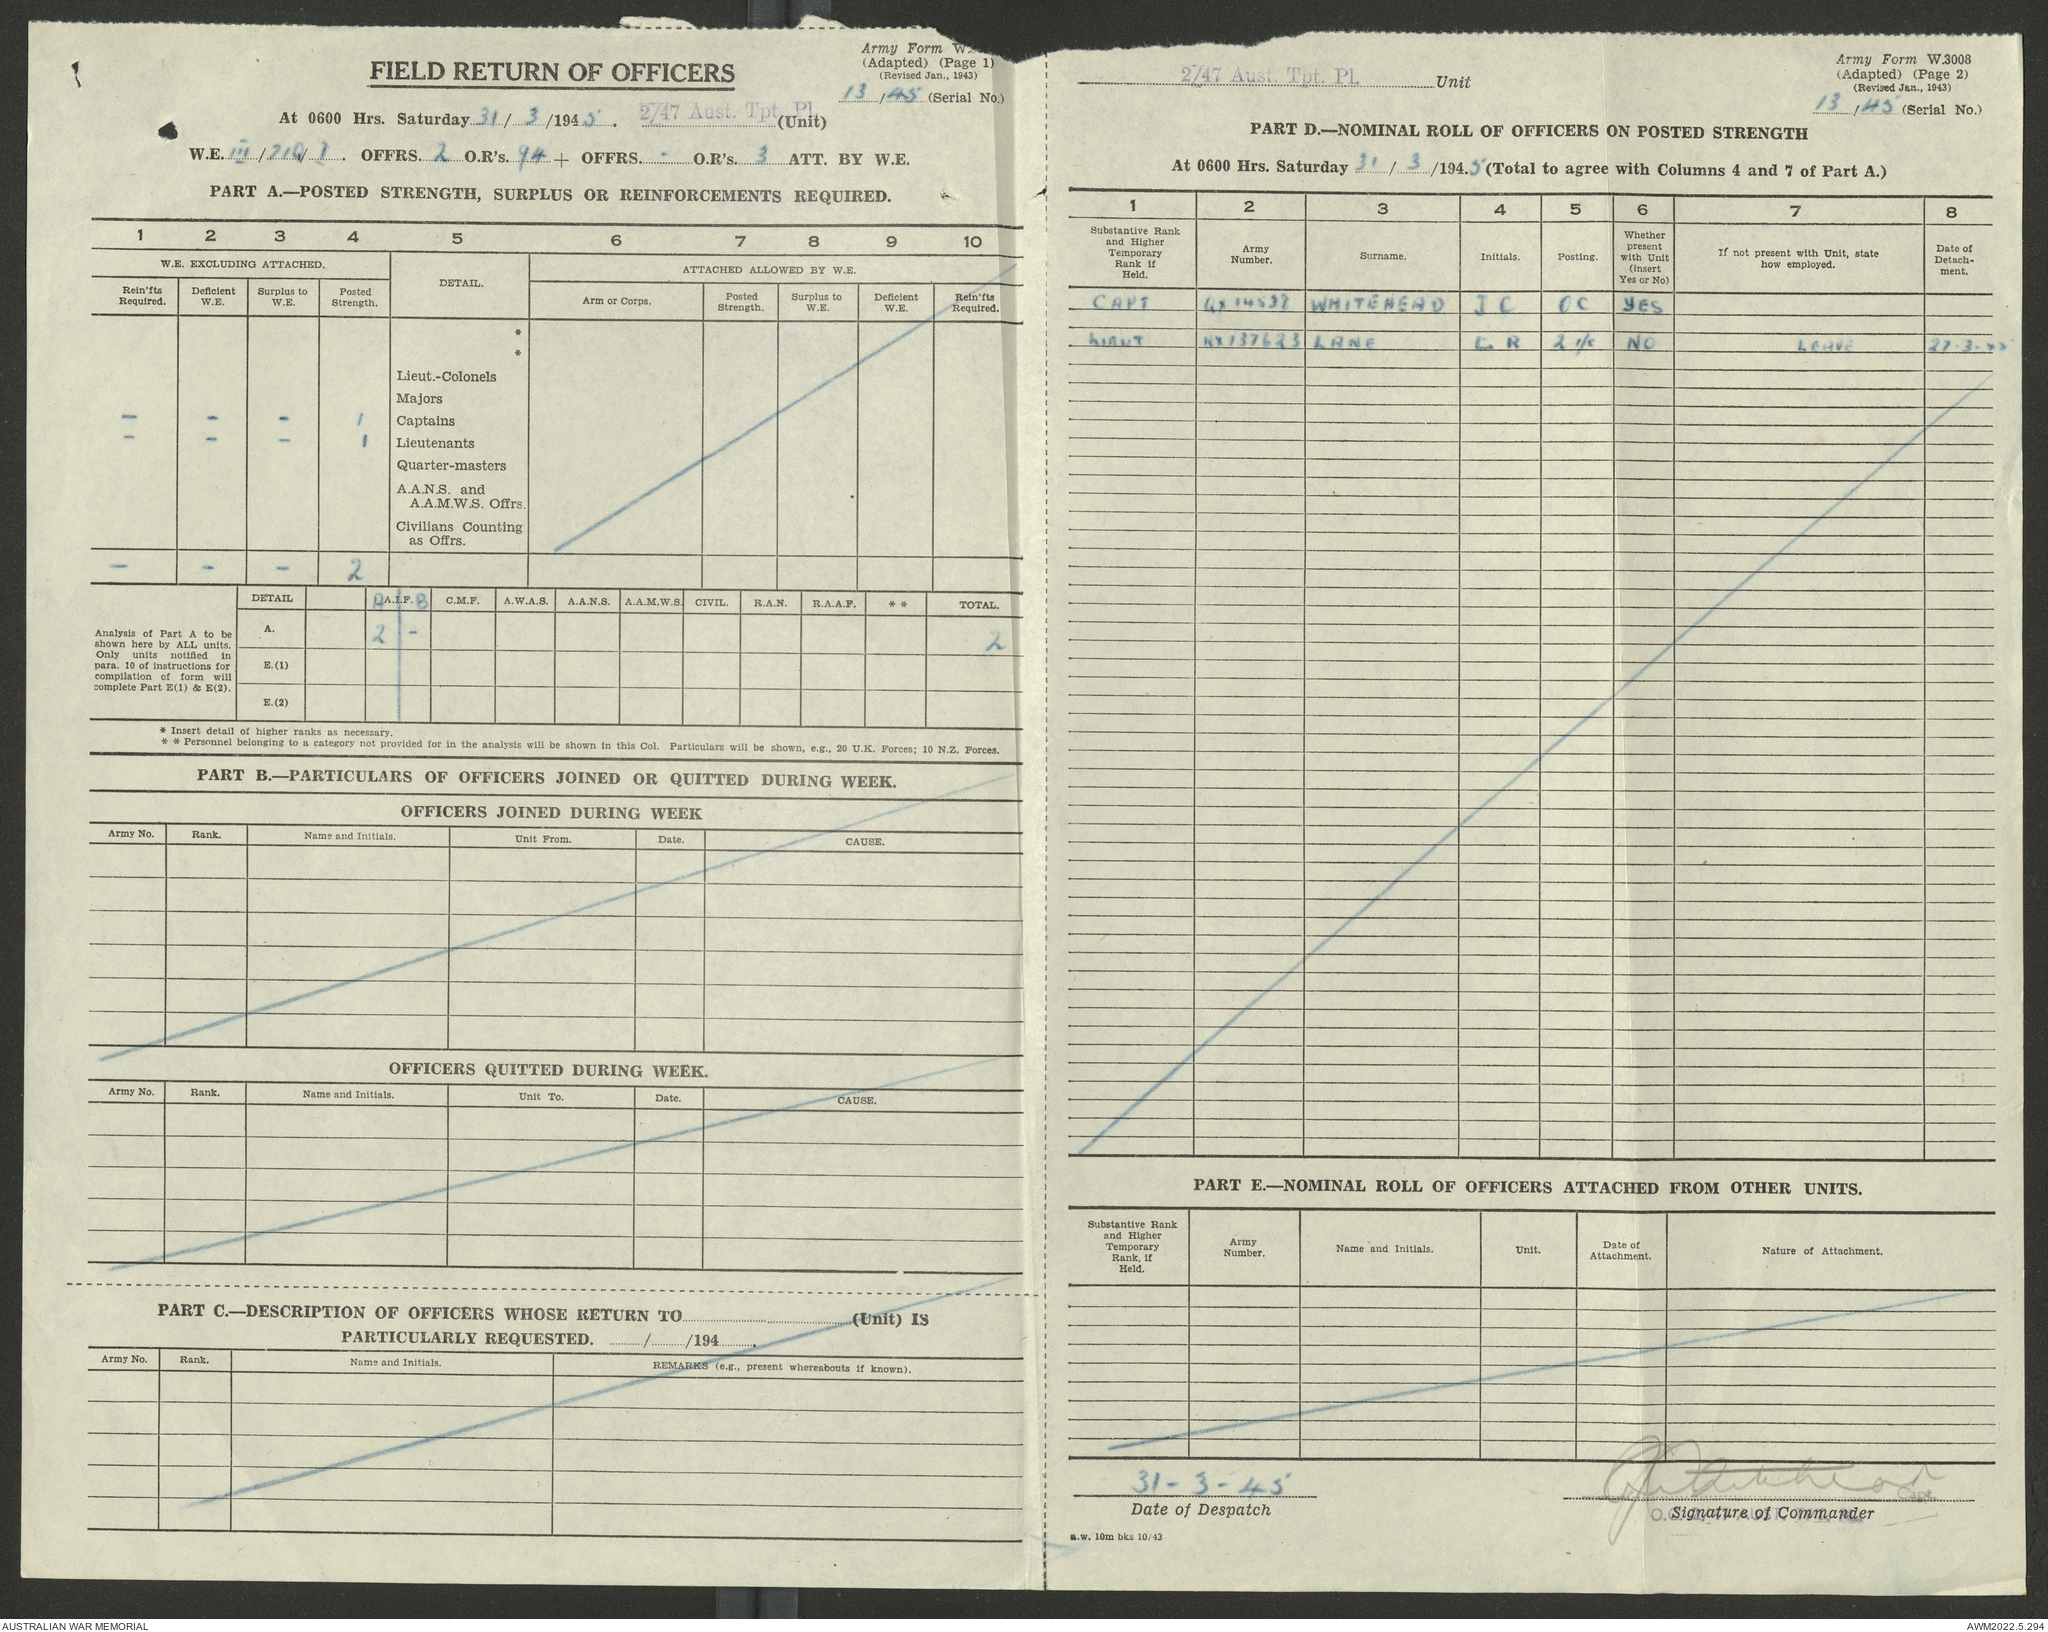 FIELD RETURN OF OFFICERS
Army Form W.
(Adapted) (Page 1)
(Revised Jan., 1943)
13/45 (Serial No.)
At 0600 Hrs. Saturday 31/3/1945. 2/47 Aust. Tpt. Pl. (Unit)
W.E. III/210/I. OFFRS. 2 O.R's. 94 + OFFRS. - O.R's. 3 ATT. BY W.E.
PART A.—POSTED STRENGTH, SURPLUS OR REINFORCEMENTS REQUIRED.
1 2 3 4 5 6 7 8 9 10
W.E. EXCLUDING ATTACHED. DETAIL. ATTACHED ALLOWED BY W.E.
Rein'fts Required. Deficient W.E. Surplus to W.E. Posted Strength. Arm or Corps. Posted Strength. Surplus to W.E. Deficient W.E. Rein'fts Required.
*
*
Lieut.-Colonels
Majors
- - - 1 Captains
- - - 1 Lieutenants
Quarter-masters
A.A.N.S. and
A.A.M.W.S. Offrs.
Civilians Counting
as Offrs.
- - - 2
DETAIL A A.I.F. B C.M.F. A.W.A.S. A.A.N.S. A.A.M.W.S. CIVIL. R.A.N. R.A.A.F. * * TOTAL.
Analysis of Part A to be
shown here by ALL units.
Only units notified in
para. 10 of instructions for
compilation of form will
complete Part E(1) & E(2).
A. 2 - 2
E.(1)
E.(2)
* Insert detail of higher ranks as necessary.
* * Personnel belonging to a category not provided for in the analysis will be shown in this Col. Particulars will be shown, e.g., 20 U.K. Forces; 10 N.Z. Forces.
PART B.—PARTICULARS OF OFFICERS JOINED OR QUITTED DURING WEEK.
OFFICERS JOINED DURING WEEK
Army No. Rank. Name and Initials. Unit From. Date. CAUSE.
OFFICERS QUITTED DURING WEEK.
Army No. Rank. Name and Initials. Unit To. Date. CAUSE.
PART C.—DESCRIPTION OF OFFICERS WHOSE RETURN TO (Unit) IS
PARTICULARLY REQUESTED. / /194 .
Army No. Rank. Name and Initials. REMARKS (e.g., present whereabouts if known).
2/47 Aust. Tpt. Pl. Unit
Army Form W.3008
(Adapted) (Page 2)
(Revised Jan., 1943)
13/45 (Serial No.)
PART D.—NOMINAL ROLL OF OFFICERS ON POSTED STRENGTH
At 0600 Hrs. Saturday 31/3/1945 (Total to agree with Columns 4 and 7 of Part A.)
1 2 3 4 5 6 7 8
Substantive Rank and Higher Temporary Rank if Held. Army Number. Surname. Initials. Posting. Whether present with Unit (insert Yes or No) If not present with Unit, state how employed. Date of Detachment.
CAPT QX14537 WHITEHEAD J C OC YES
LIEUT NX137623 LANE L R 2 i/c NO LEAVE 27-3-45
PART E.—NOMINAL ROLL OF OFFICERS ATTACHED FROM OTHER UNITS.
Substantive Rank and Higher Temporary Rank, if Held. Army Number. Name and Initials. Unit. Date of Attachment. Nature of Attachment.
31-3-45
Date of Despatch
JC Whitehead Capt.
Signature of Commander
a.w. 10m bks 10/43
AUSTRALIAN WAR MEMORIAL
AWM2022.5.294